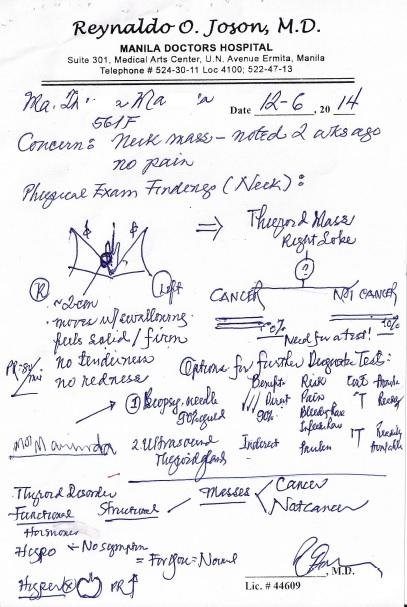 Reynaldo O. Joson, M.D.
MANILA DOCTORS HOSPITAL
Suite 301, Medical Arts Center, U.N. Avenue Ermita, Manila
Telephone # 524-30-11 Loc 4100; 522-47-13
Ma.
Date 12-6, 2014
56/F
Concern: Neck mass - noted 2 wks ago
no pain
Physical Exam Findings (Neck):
⇒ Thyroid Mass
Right Lobe
?
R Left
CANCER NOT CANCER
~2-cm
moves w/ swallowing
feels solid / firm
no tenderness
no redness
PR-84/min
Need for a test!
Options for Further Diagnostic Test:
Benefit Risk Cost
① Biopsy, needle Direct Pain
90% 90% Bleeding
2. Ultrasound Indirect Painless Readily
Thyroid gland Available
Thyroid Disorder
Functional Structural Masses Cancer
Not cancer
Hormones
Hypo No symptom
= For you = Normal
Hyper PR↑
, M.D.
Lic. # 44609